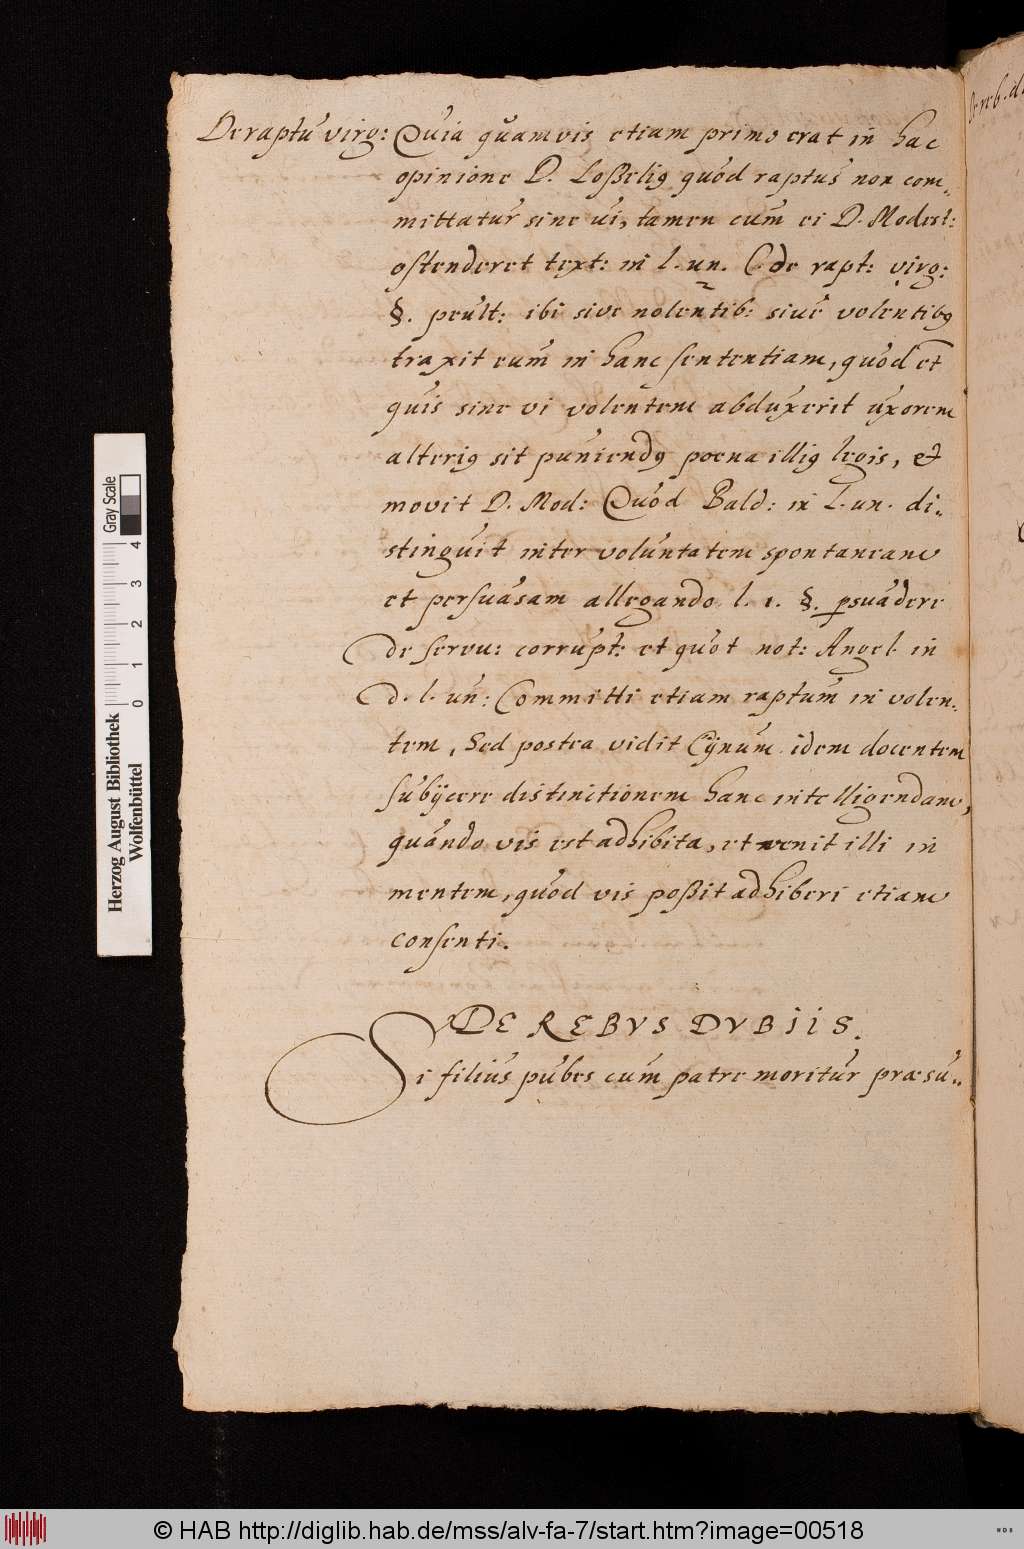 De raptu virg: Quia quamvis etiam primo erat in hac
opinione D. Loßelig quod raptus non com„
mittatur sine vi, tamen cum ei D. Modest:
ostenderet text: in l. un. C. de rapt: virg:
§. penult: ibi sive nolentib: sive volentibg
traxit eum in hanc sententiam, quod et
quis sine vi volentem abduxerit uxorem
alterig sit puniendg poena illig legis, et
movit D. Mod: Quod Bald: in l. un. di„
stinguit inter voluntatem spontaneam
et persuasam allegando l. 1. §. psuadere
de servu: corrupt: et quot not: Angel. in
d. l. un: Committi etiam raptum in volen„
tem, Sed postea vidit Cynum idem docentem
subijcere distinctionem hanc intelligendam,
quando vis est adhibita, et venit illi in
mentem, quod vis poßit adhiberi etiam
consenti.
DE REBVS DVBIIS.
Si filius pubes cum patre moritur præsu„
De reb. d
Herzog August Bibliothek
Wolfenbüttel
0 1 2 3 4
Gray Scale
© HAB http://diglib.hab.de/mss/alv-fa-7/start.htm?image=00518